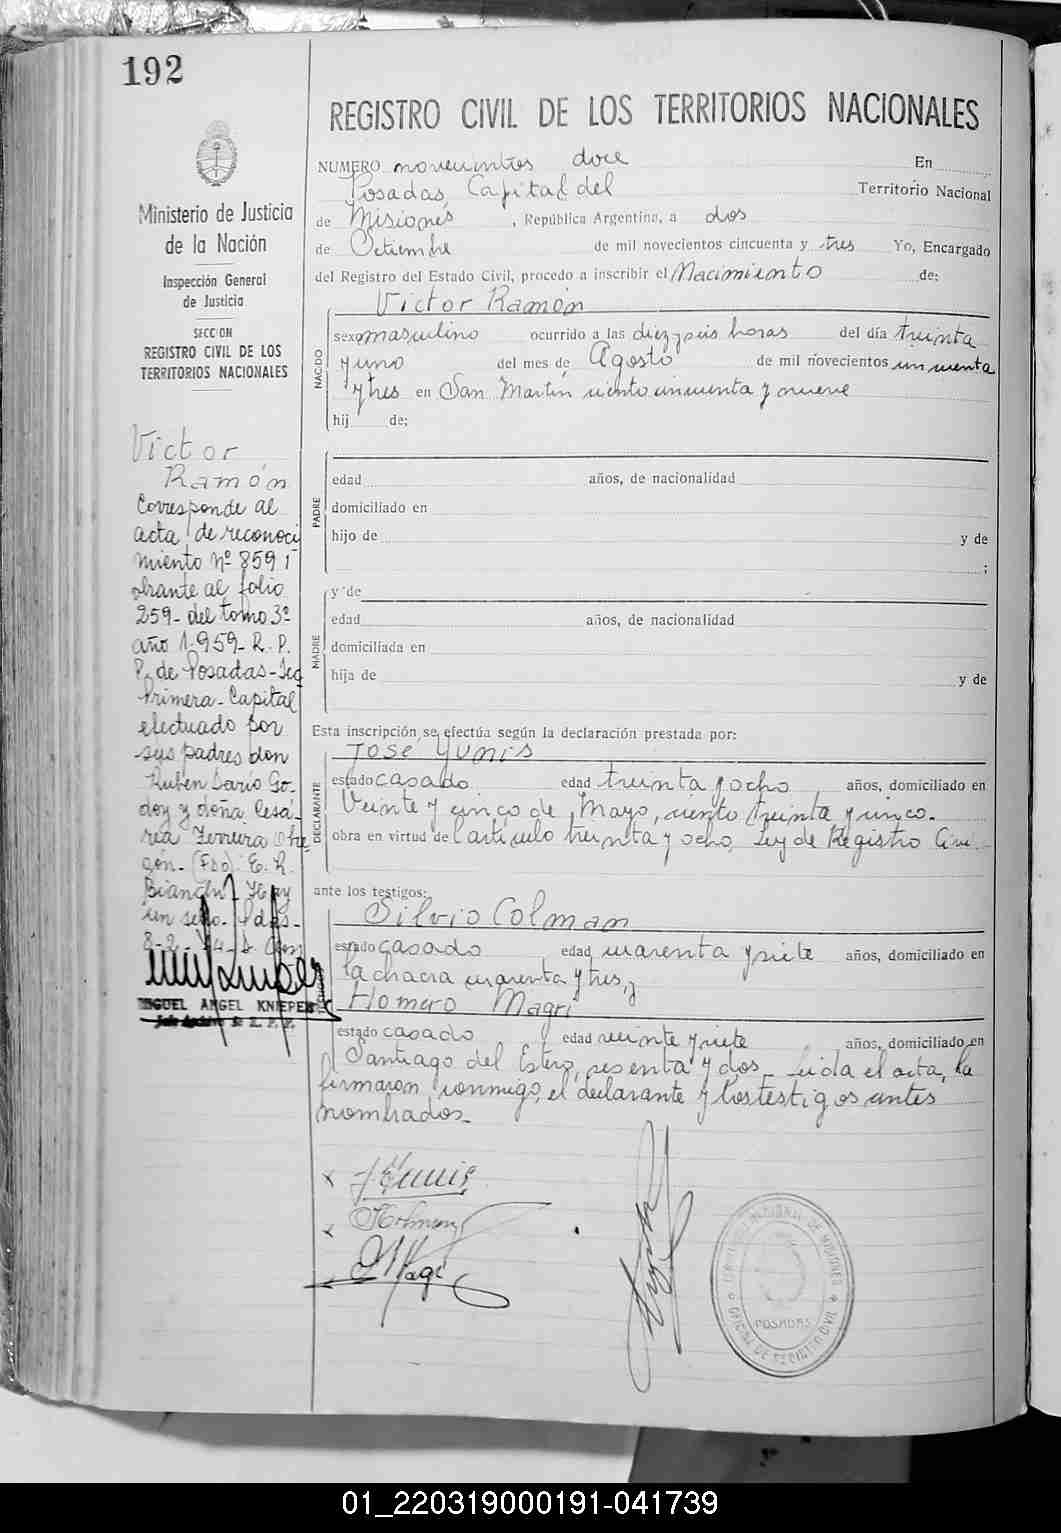 192
REGISTRO CIVIL DE LOS TERRITORIOS NACIONALES
NUMERO novecientos doce En
Posadas, Capital del Territorio Nacional
de Misiones, República Argentina, a dos
de Octiembre de mil novecientos cincuenta y tres Yo, Encargado
del Registro del Estado Civil, procedo a inscribir el Nacimiento de:
Victor Ramón
NACIDO
sexo masculino ocurrido a las diez y seis horas del día treinta
y uno del mes de Agosto de mil novecientos cincuenta
y tres en San Martín ciento cincuenta y nueve
hij de:
PADRE
edad años, de nacionalidad
domiciliado en
hijo de y de
;
MADRE
y de
edad años, de nacionalidad
domiciliada en
hija de y de
Esta inscripción se efectúa según la declaración prestada por:
José Yunis
DECLARANTE
estado casado edad treinta y ocho años, domiciliado en
Veinte y cinco de Mayo, ciento treinta y cinco.
obra en virtud del artículo treinta y ocho, Ley de Registro Civil
ante los testigos:
Silvio Colman
estado casado edad cuarenta y siete años, domiciliado en
la chacra cuarenta y tres, y
Homero Magri
estado casado edad veinte y siete años, domiciliado en
Santiago del Estero, sesenta y dos. Leida el acta, la
firmaron conmigo, el declarante y los testigos antes
nombrados.
Ministerio de Justicia
de la Nación
Inspección General
de Justicia
SECCION
REGISTRO CIVIL DE LOS
TERRITORIOS NACIONALES
Victor
Ramón
Corresponde al
acta de reconoci
miento nº 859 T
obrante al folio
259- del tomo 3º
año 1.959- R. P.
P. de Posadas-Sec
Primera-Capital
efectuado por
sus padres don
Ruben Dario Go-
doy y doña Cesá-
rea Ferreira Obre
gón. (Fdo) E. R.
Bianchi. Hay
un sello. Pdas-
MIGUEL ANGEL KNIEPER
Jefe Archivo de R. P. P.
POSADAS
OFICINA DE REGISTRO CIVIL
01_220319000191-041739